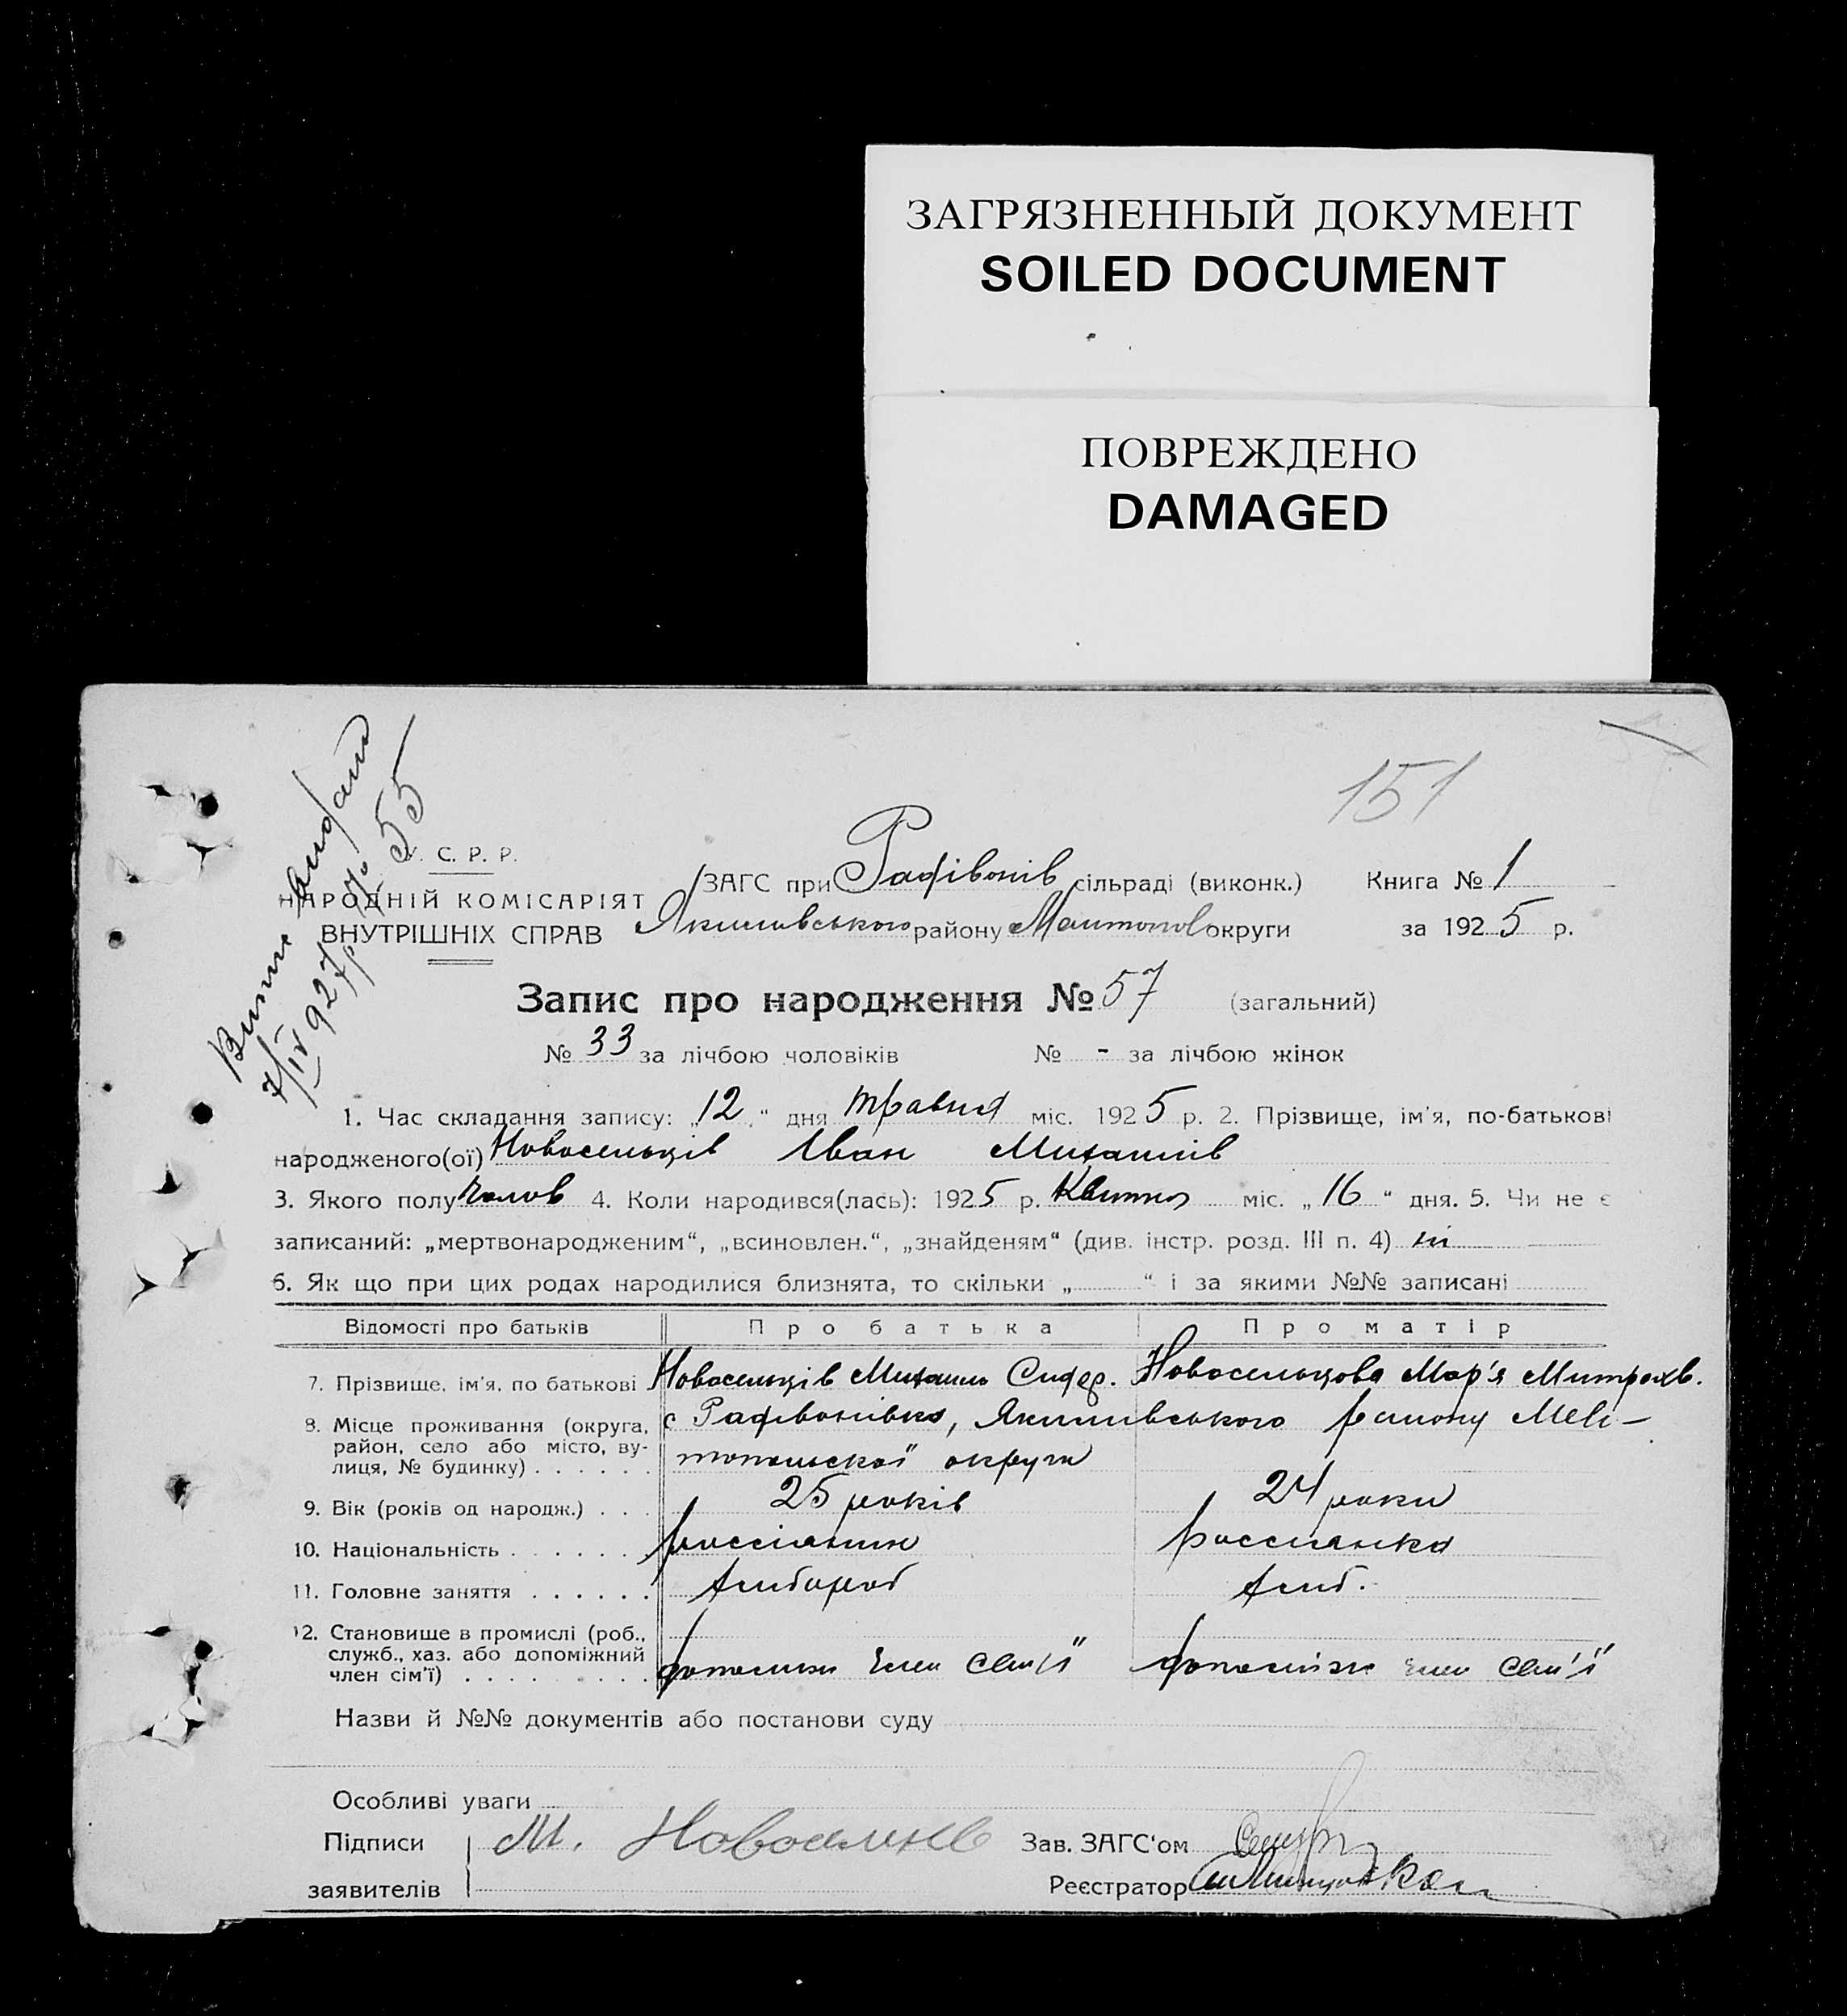 ЗАГРЯЗНЕННЫЙ ДОКУМЕНТ
SOILED DOCUMENT
ПОВРЕЖДЕНО
DAMAGED
151
Витяг видано
7/IV 927р № 55
У. С. Р. Р.
НАРОДНІЙ КОМІСАРІЯТ
ВНУТРІШНІХ СПРАВ
ЗАГС при Радівонів сільраді (виконк.) Книга № 1
Якимівського району Мелитопол округи за 1925 р.
Запис про народження № 57 (загальний)
№ 33 за лічбою чоловіків № - за лічбою жінок
1. Час складання запису: „12“ дня травня міс. 1925 р. 2. Прізвище, ім'я, по-батькові
народженого(ої) Новосельців Іван Михайлів
3. Якого полу чолов 4. Коли народився(лась): 1925 р. Квитня міс. „16“ дня. 5. Чи не є
записаний: „мертвонародженим“, „всиновлен.“, „знайденям“ (див. інстр. розд. III п. 4) ні
6. Як що при цих родах народилися близнята, то скільки „ “ і за якими №№ записані
Відомості про батьків Про батька Про матір
7. Прізвище, ім'я, по батькові Новосельців Михаиль Сидор. Новосельцова Мар'я Митрохв.
8. Місце проживання (округа, район, село або місто, вулиця, № будинку) с Радівонівка, Якимівського району Мелі-
топольскої округи
9. Вік (років од народж.) 25 років 24 роки
10. Національність россіянин россиянка
11. Головне заняття хлібороб хліб.
12. Становище в промислі (роб., служб., хаз. або допоміжний член сім'ї) допоміжн член сем'ї допоміжн член сем'ї
Назви й №№ документів або постанови суду
Особливі уваги
Підписи М. Новоселцев Зав. ЗАГС'ом
заявителів Реєстратор